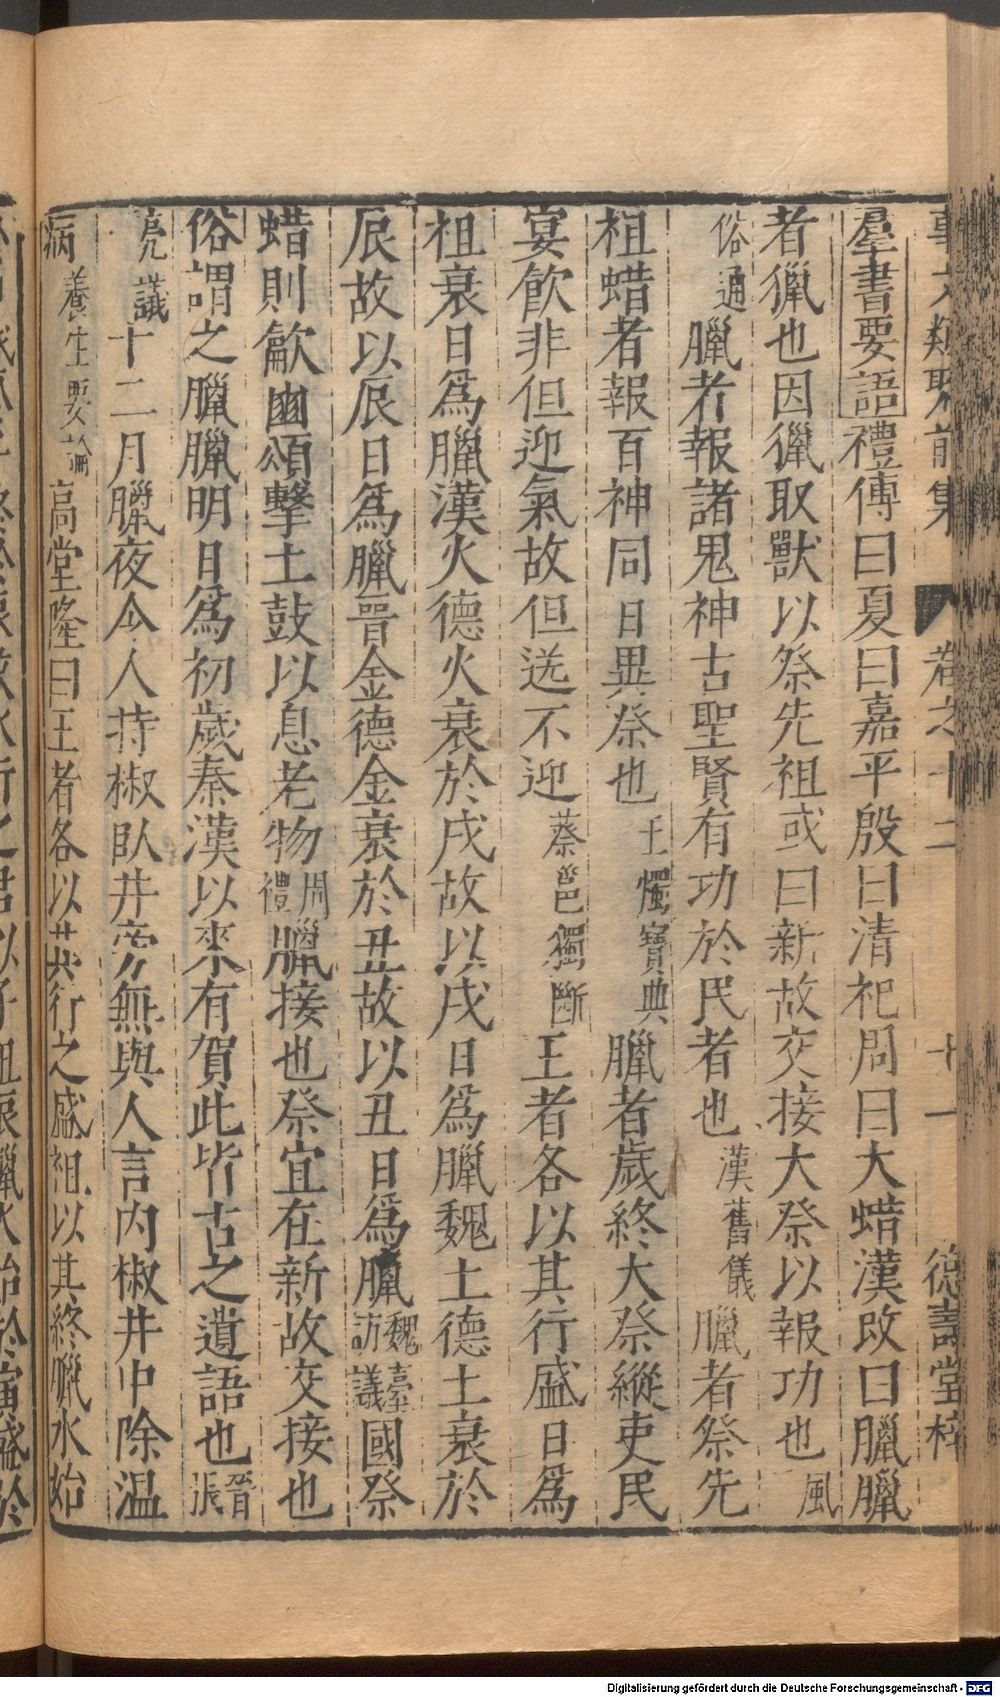 事文類聚前集 卷之十二 十一 德壽堂梓
羣書要語禮傳曰夏曰嘉平殷曰清祀周曰大蜡漢改曰臘臘
者獵也因獵取獸以祭先祖或曰新故交接大祭以報功也風
俗通臘者報諸鬼神古聖賢有功於民者也漢舊儀臘者祭先
祖蜡者報百神同日異祭也玉燭寶典臘者歲終大祭縱吏民
宴飲非但迎氣故但送不迎蔡邕獨斷王者各以其行盛日爲
祖衰日爲臘漢火德火衰於戌故以戌日爲臘魏土德土衰於
辰故以辰日爲臘晉金德金衰於丑故以丑日爲臘魏臺訪議國祭
蜡則龡豳頌擊土鼓以息老物周禮臘接也祭宜在新故交接也
俗謂之臘臘明日爲初歲秦漢以來有賀此皆古之遺語也晉張
亮議十二月臘夜令人持椒臥井旁無與人言内椒井中除温
病養生要論高堂隆曰王者各以其行之盛祖以其終臘水始
Digitalisierung gefördert durch die Deutsche Forschungsgemeinschaft - DFG